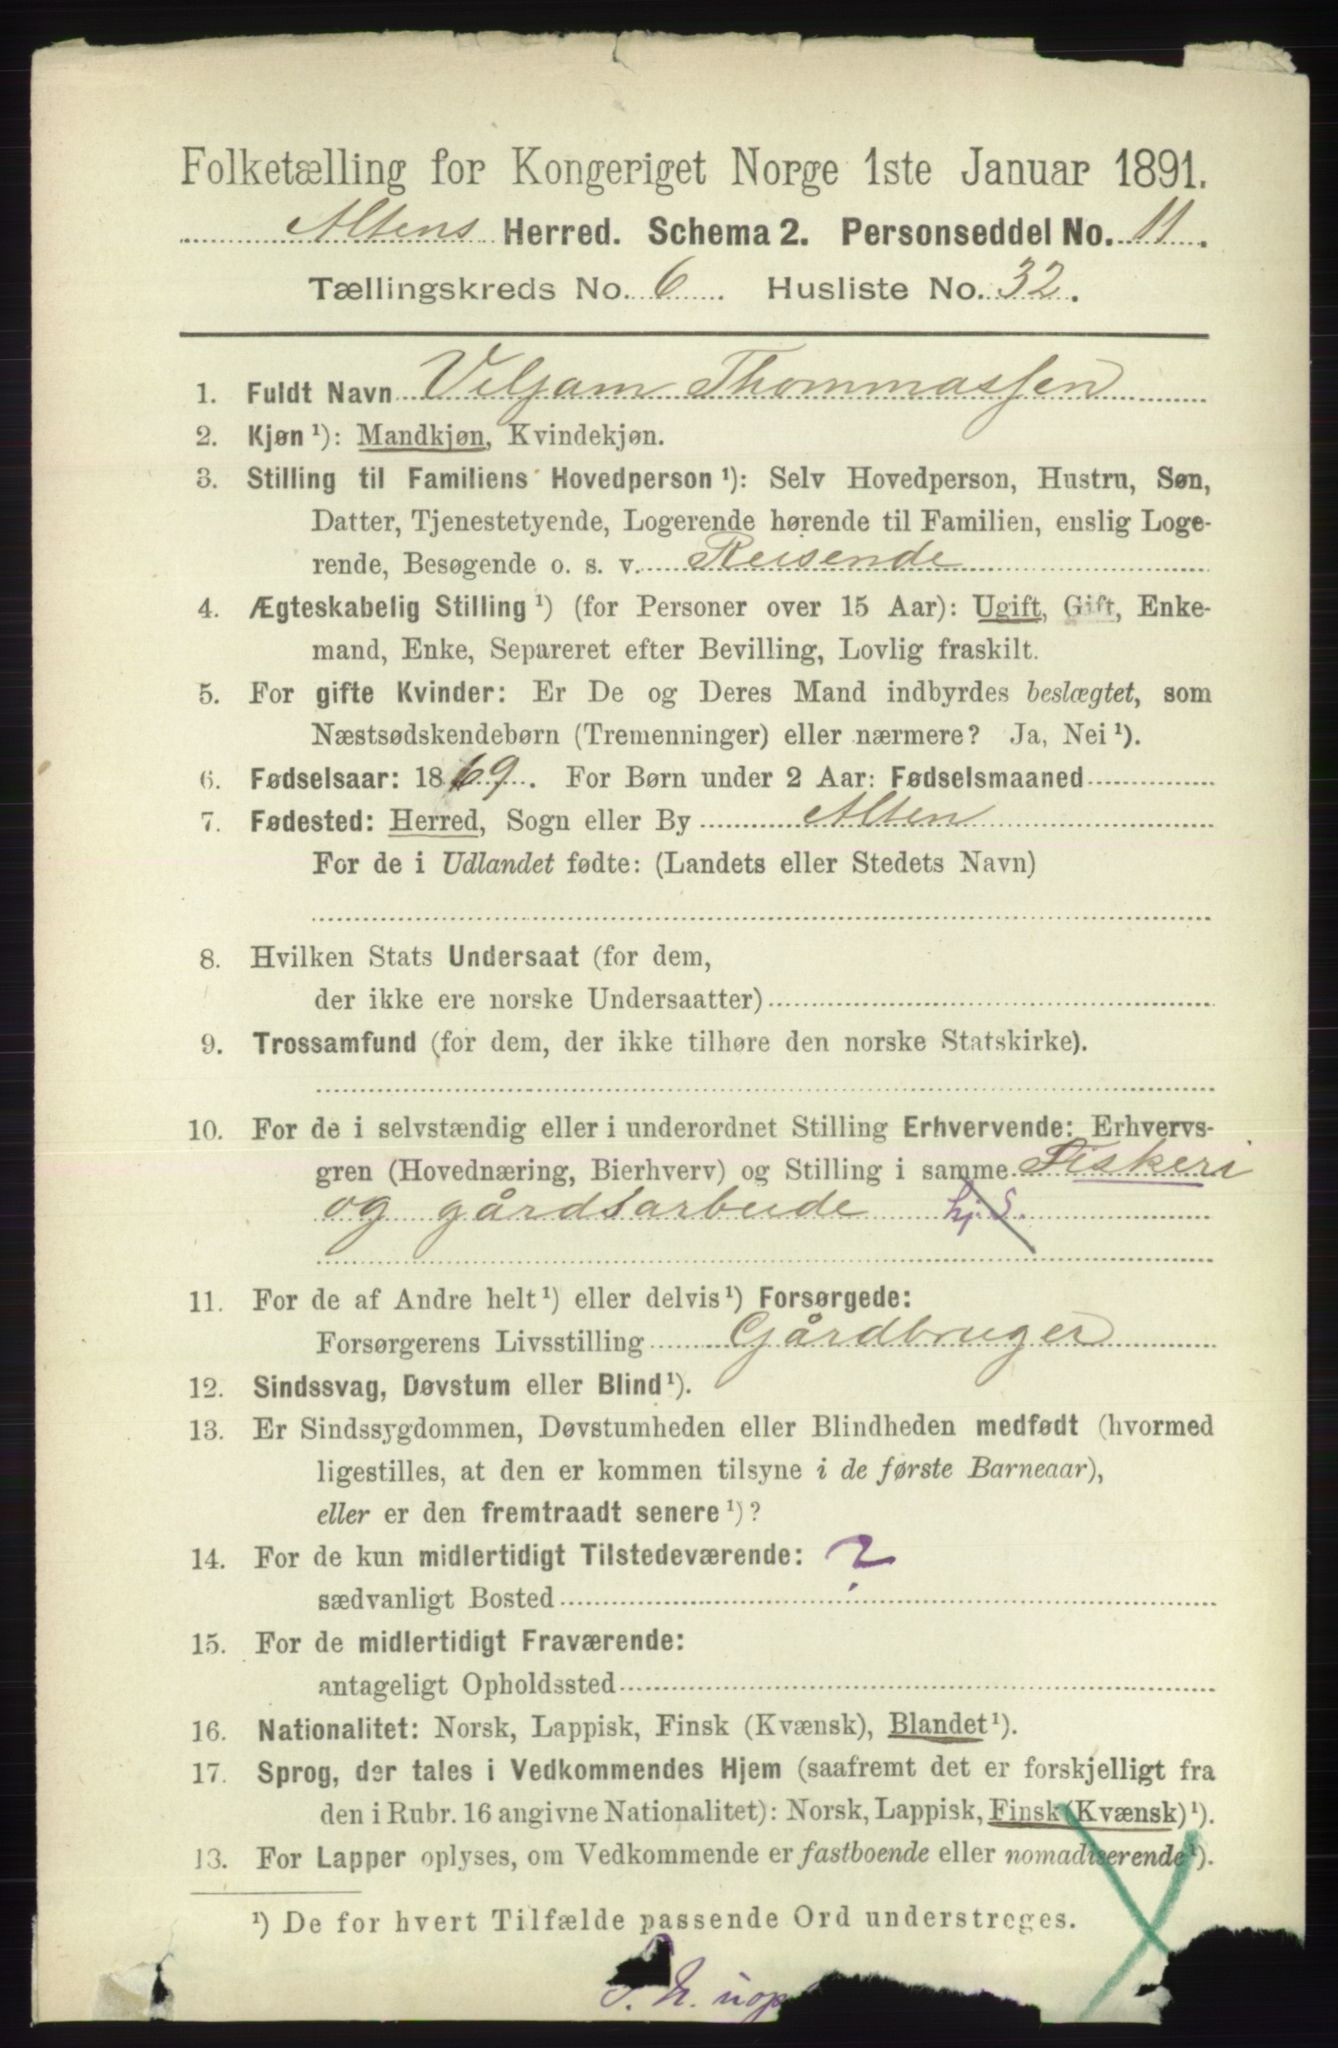 Folketælling for Kongeriget Norge 1ste Januar 1891.
Altens Herred. Schema 2. Personseddel No. 11.
Tællingskreds No. 6. Husliste No. 32.
1. Fuldt Navn Viljam Thommassen
2. Kjøn ¹): Mandkjøn, Kvindekjøn.
3. Stilling til Familiens Hovedperson ¹): Selv Hovedperson, Hustru, Søn,
Datter, Tjenestetyende, Logerende hørende til Familien, enslig Loge-
rende, Besøgende o. s. v. Reisende
4. Ægteskabelig Stilling ¹) (for Personer over 15 Aar): Ugift, Gift, Enke-
mand, Enke, Separeret efter Bevilling, Lovlig fraskilt.
5. For gifte Kvinder: Er De og Deres Mand indbyrdes beslægtet, som
Næstsødskendebørn (Tremenninger) eller nærmere? Ja, Nei ¹).
6. Fødselsaar: 1869. For Børn under 2 Aar: Fødselsmaaned
7. Fødested: Herred, Sogn eller By Alten
For de i Udlandet fødte: (Landets eller Stedets Navn)
8. Hvilken Stats Undersaat (for dem,
der ikke ere norske Undersaatter)
9. Trossamfund (for dem, der ikke tilhøre den norske Statskirke).
10. For de i selvstændig eller i underordnet Stilling Erhvervende: Erhvervs-
gren (Hovednæring, Bierhverv) og Stilling i samme Fiskeri
og gårdsarbeide hj. S.
11. For de af Andre helt ¹) eller delvis ¹) Forsørgede:
Forsørgerens Livsstilling Gårdbruger
12. Sindssvag, Døvstum eller Blind ¹).
13. Er Sindssygdommen, Døvstumheden eller Blindheden medfødt (hvormed
ligestilles, at den er kommen tilsyne i de første Barneaar),
eller er den fremtraadt senere ¹)?
14. For de kun midlertidigt Tilstedeværende: ?
sædvanligt Bosted
15. For de midlertidigt Fraværende:
antageligt Opholdssted
16. Nationalitet: Norsk, Lappisk, Finsk (Kvænsk), Blandet ¹).
17. Sprog, der tales i Vedkommendes Hjem (saafremt det er forskjelligt fra
den i Rubr. 16 angivne Nationalitet): Norsk, Lappisk, Finsk (Kvænsk) ¹).
13. For Lapper oplyses, om Vedkommende er fastboende eller nomadiserende ¹).
¹) De for hvert Tilfælde passende Ord understreges.